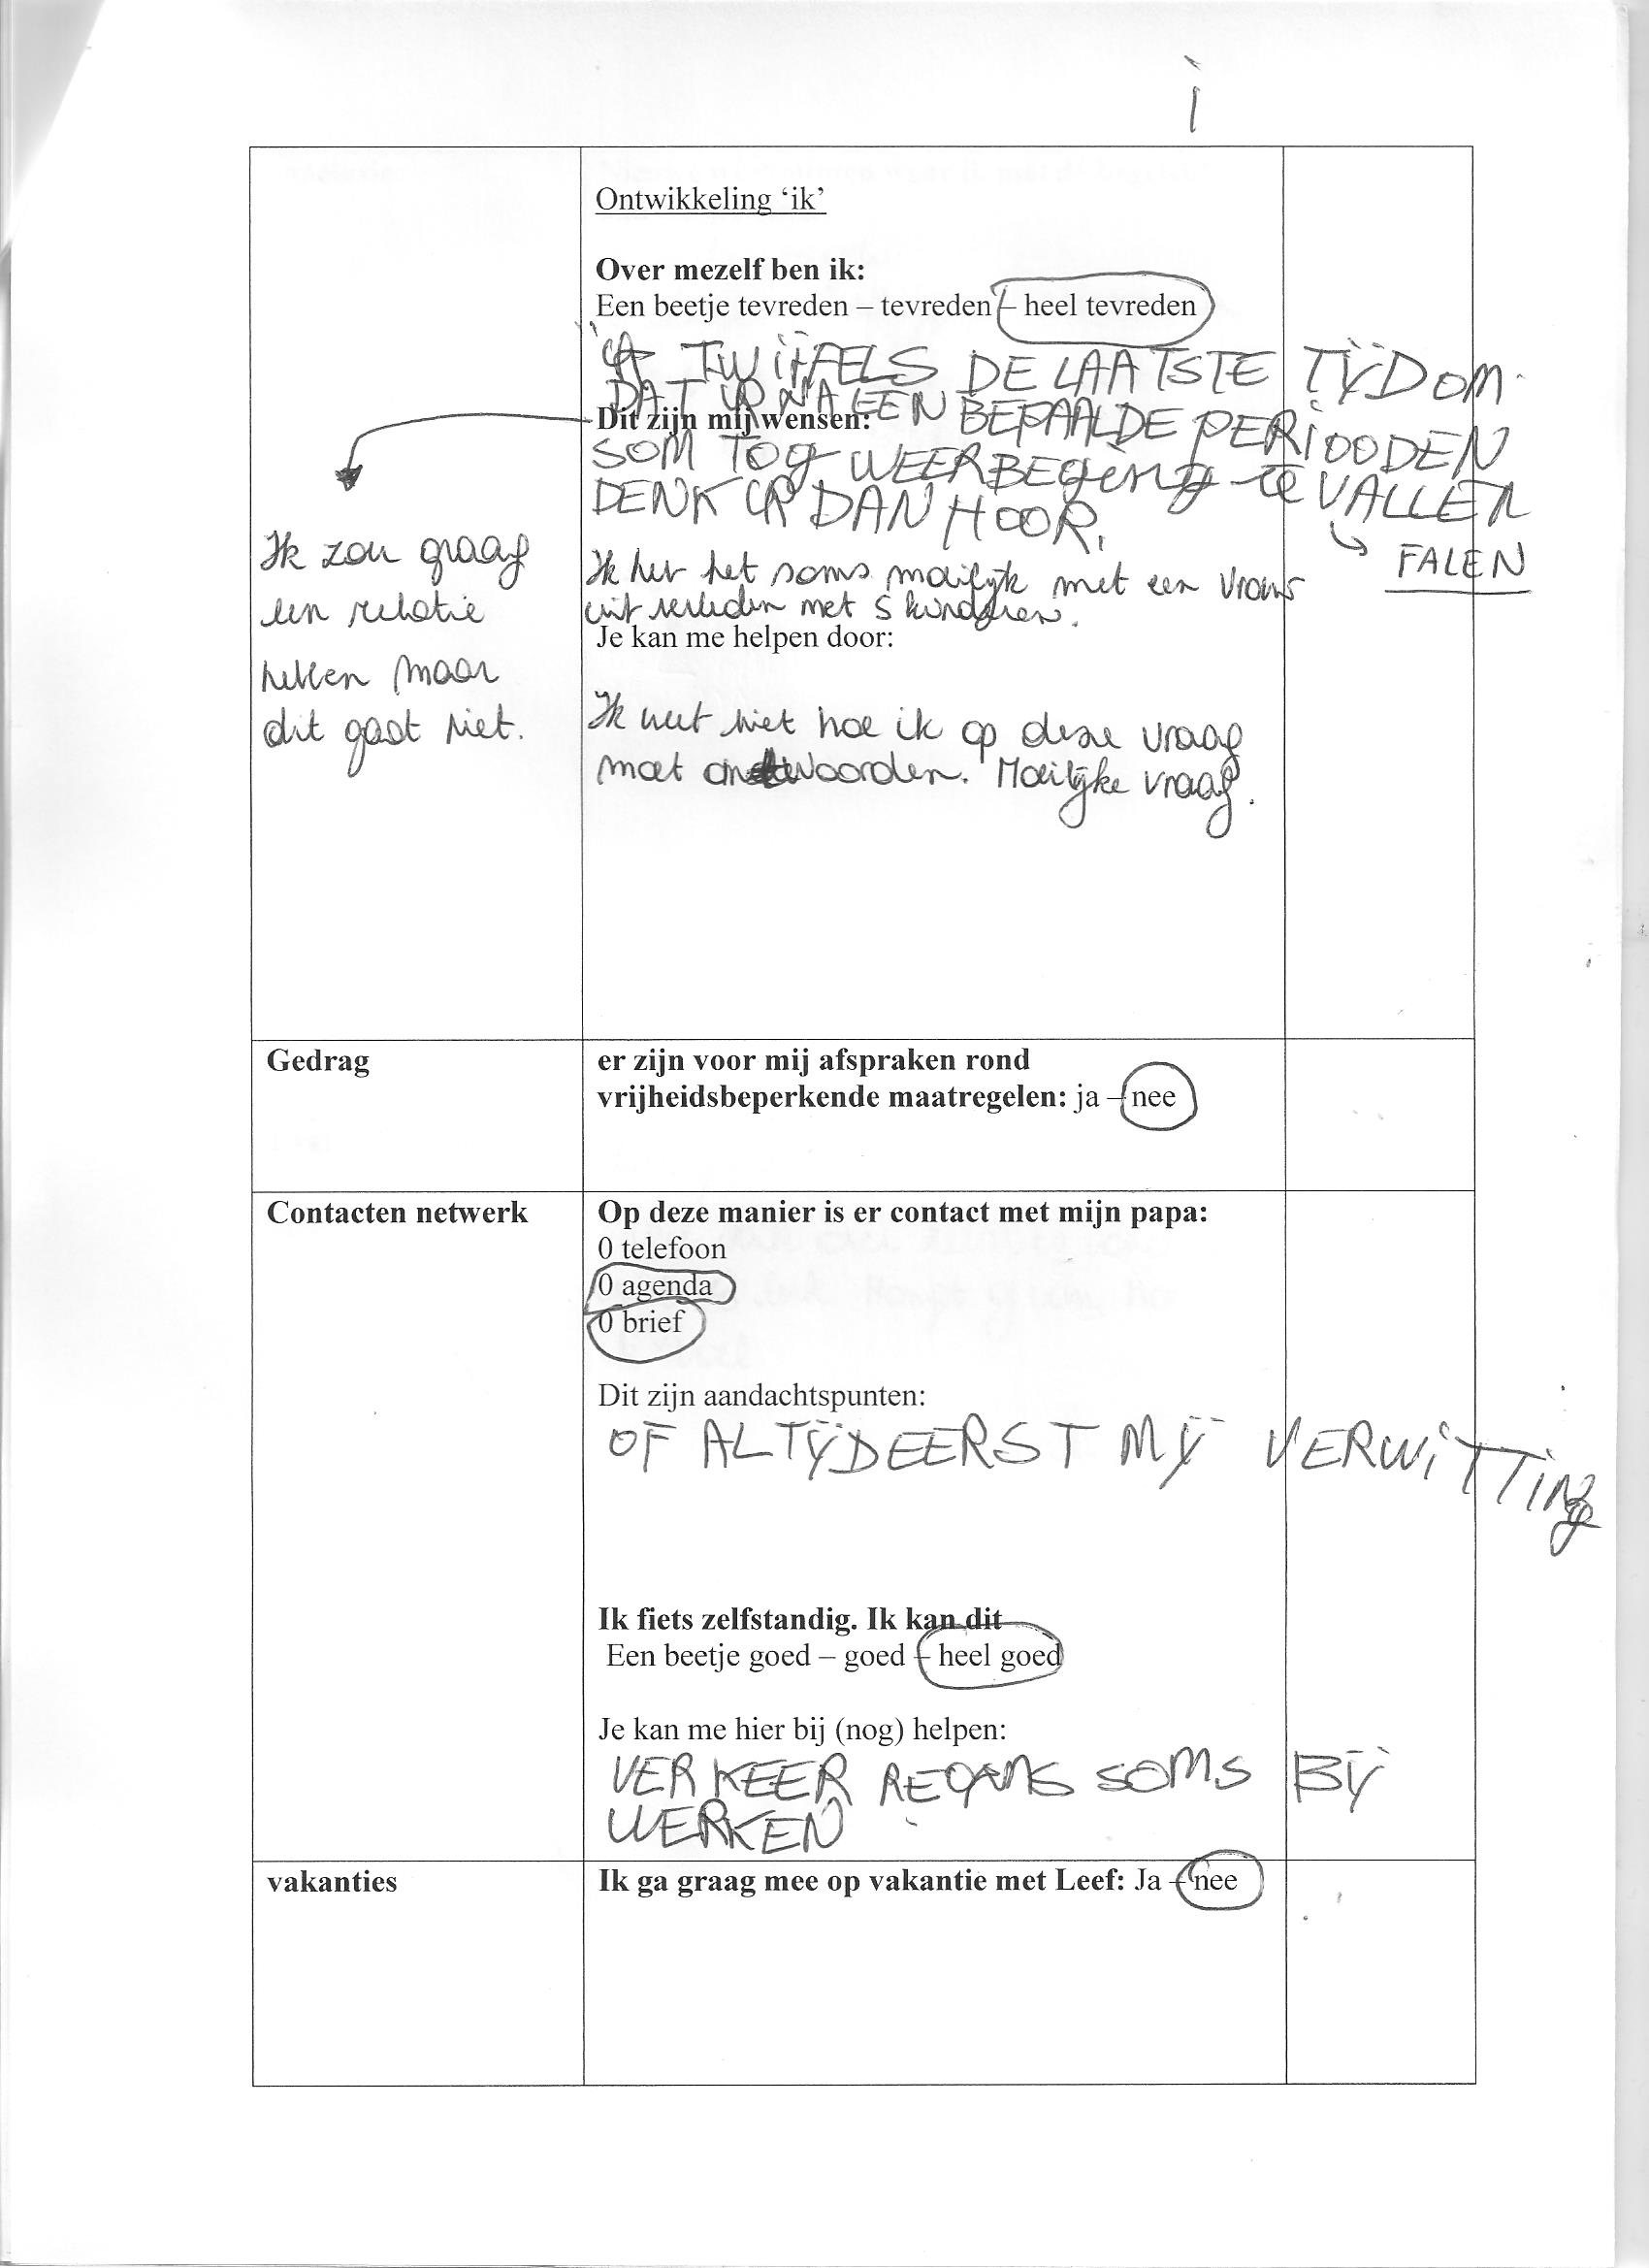 Ontwikkeling ‘ik’
Over mezelf ben ik:
Een beetje tevreden – tevreden – heel tevreden
TWIJFELS DE LAATSTE TIJD OM
DAT IK NA EEN BEPAALDE PERIOODEN
Dit zijn mij wensen:
SOM TOG WEER BEGING TE VALLEN
DENK IK DAN HOOR.
FALEN
Ik heb het soms moeilijk met een vrouw
uit verleden met 5 kinderen.
Je kan me helpen door:
Ik weet niet hoe ik op deze vraag
moet andtwoorden. Moeilijke vraag.
Ik zou graag
een relatie
hebben maar
dit gaat niet.
Gedrag
er zijn voor mij afspraken rond
vrijheidsbeperkende maatregelen: ja – nee
Contacten netwerk
Op deze manier is er contact met mijn papa:
0 telefoon
0 agenda
0 brief
Dit zijn aandachtspunten:
OF ALTIJD EERST MIJ VERWITTING
Ik fiets zelfstandig. Ik kan dit
Een beetje goed – goed – heel goed
Je kan me hier bij (nog) helpen:
VERKEER SOMS BIJ
WERKEN
vakanties
Ik ga graag mee op vakantie met Leef: Ja – nee